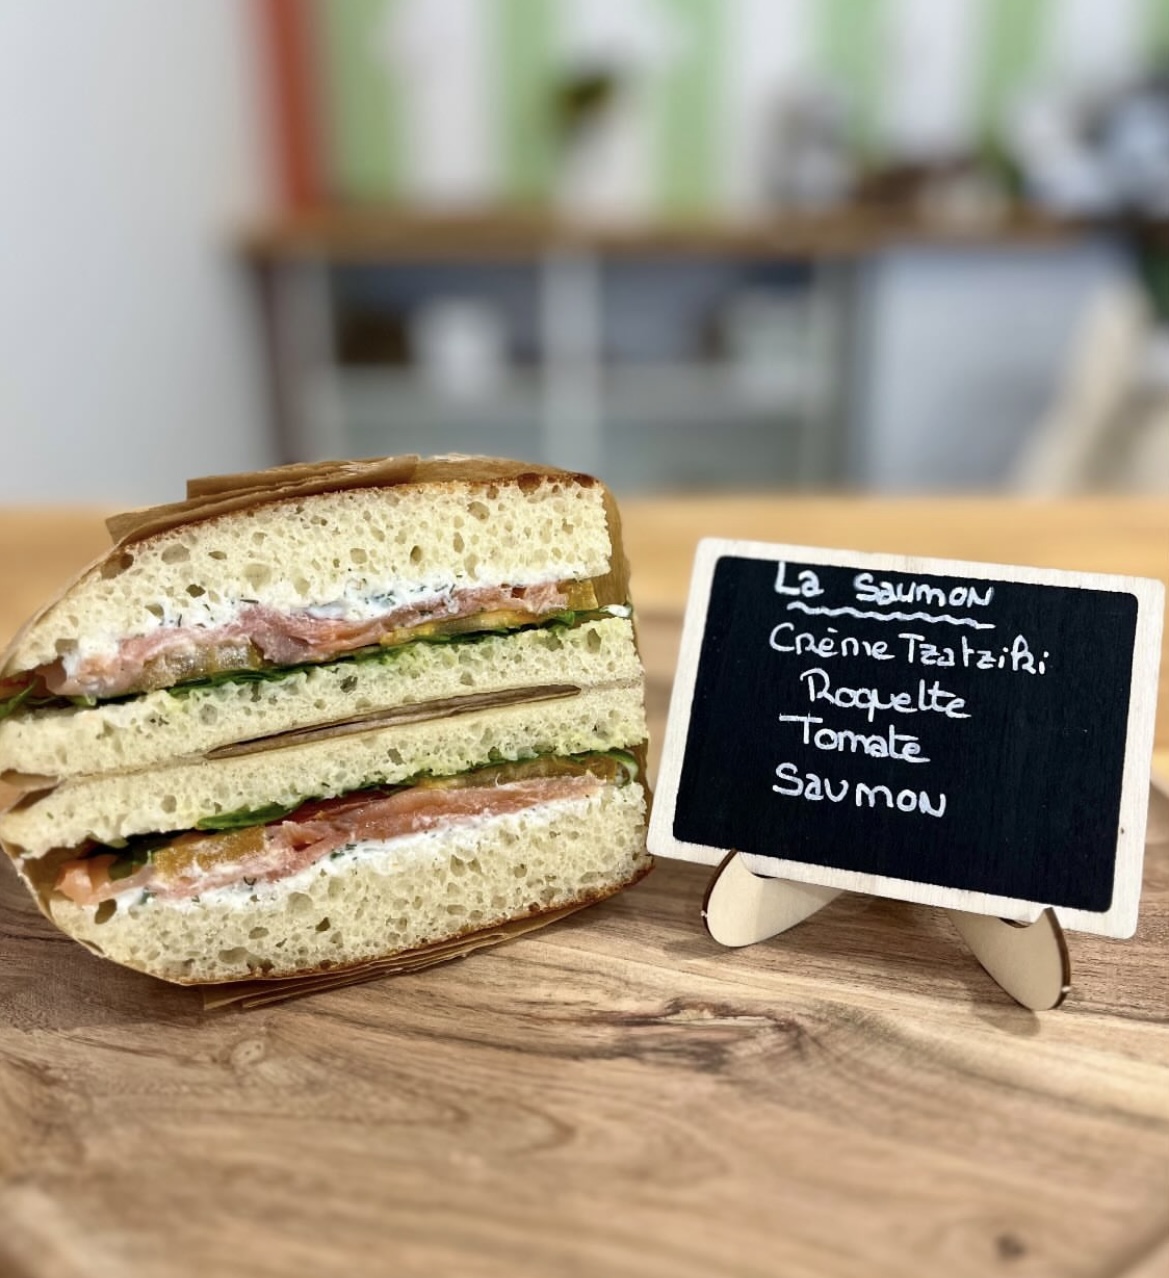 La Saumon
Crème Tzatziki
Roquette
Tomate
Saumon